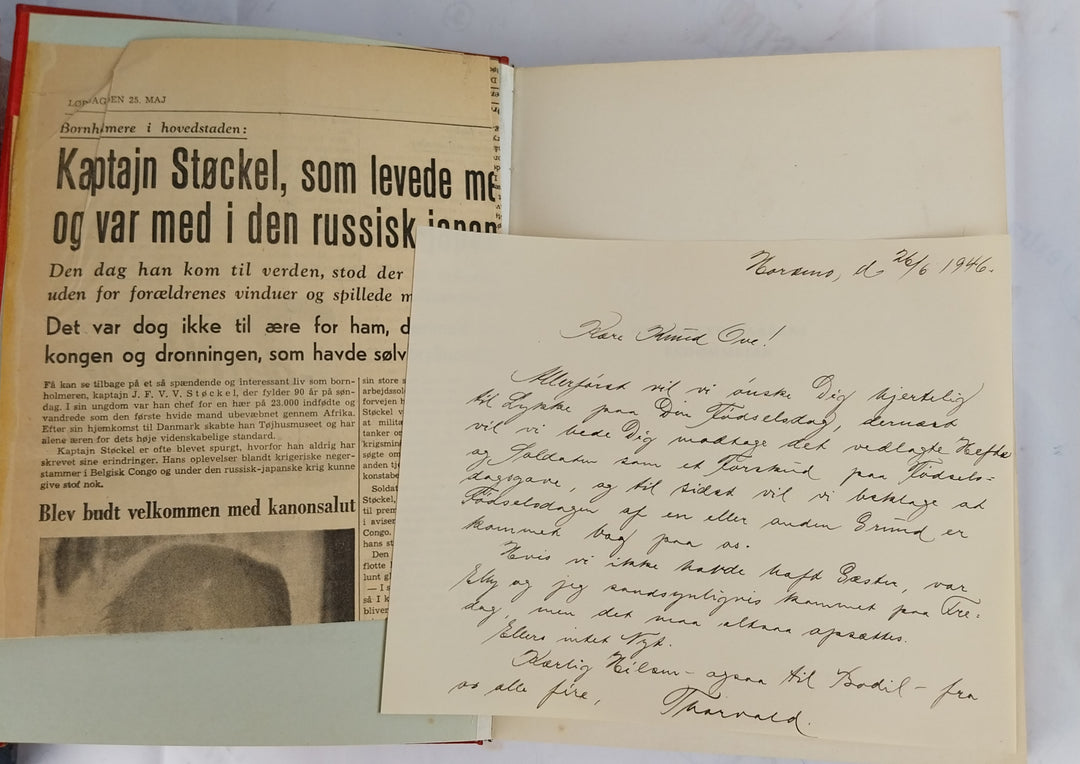 LØRDAGEN 25. MAJ
Bornholmere i hovedstaden:
Kaptajn Støckel, som levede me
og var med i den russisk japan
Den dag han kom til verden, stod der
uden for forældrenes vinduer og spillede m
Det var dog ikke til ære for ham, d
kongen og dronningen, som havde sølv
Få kan se tilbage på et så spændende og interessant liv som born-
holmeren, kaptajn J. F. V. V. Støckel, der fylder 90 år på søn-
dag. I sin ungdom var han chef for en hær på 23.000 indfødte og
vandrede som den første hvide mand ubevæbnet gennem Afrika.
Efter sin hjemkomst til Danmark skabte han Tøjhusmuseet og har
alene æren for dets høje videnskabelige standard.
Kaptajn Støckel er ofte blevet spurgt, hvorfor han aldrig har
skrevet sine erindringer. Hans oplevelser blandt krigeriske neger-
stammer i Belgisk Congo og under den russisk-japanske krig kunne
give stof nok.
Blev budt velkommen med kanonsalut
sin store s
arbejdssol
forvejen h
Støckel v
at milita
tanker on
krigsmin
søgte om
anden tj
konstabe
Soldat
Støckel,
til prem
i aviser
Congo.
hans st
Den
flotte l
lunt gl
— I s
så I k
bliver
Horsens, d 26/6 1946.
Kære Knud Ove!
Allerførst vil vi ønske Dig hjertelig
til Lykke paa Din Fødselsdag, dernæst
vil vi bede Dig modtage det vedlagte Hefte
og Soldater som et Forskud paa Fødsels-
dagsgave, og til sidst vil vi beklage at
Fødselsdagen af en eller anden Grund er
kommet bag paa os.
Hvis vi ikke havde haft Gæster, var
Elly og jeg sandsynligvis kommet paa Fre-
dag, men det maa altsaa opsættes.
Ellers intet Nyt.
Kærlig Hilsen - ogsaa til Bodil - fra
os alle fire,
Thorvald.